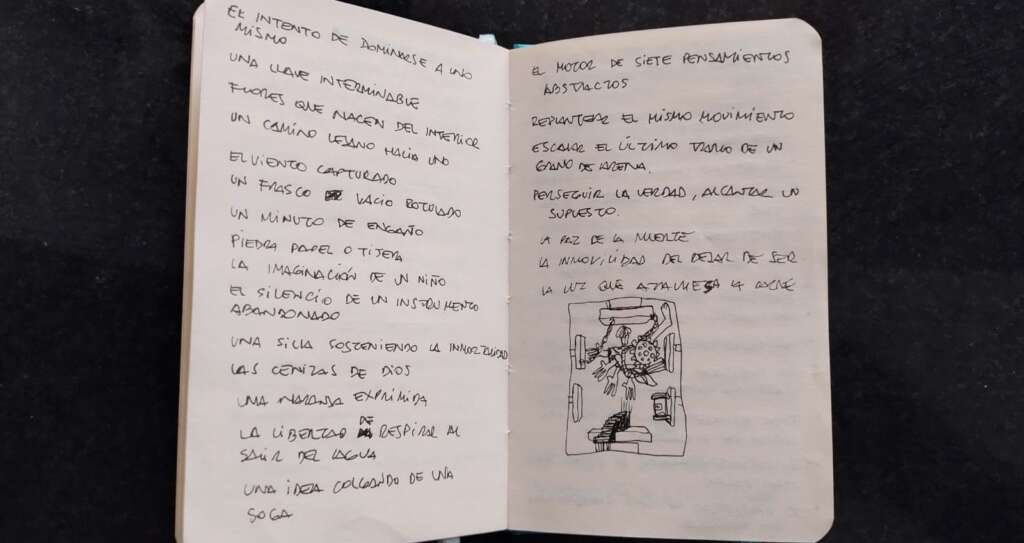 EL INTENTO DE DOMINARSE A UNO
MISMO
UNA LLAVE INTERMINABLE
FLORES QUE NACEN DEL INTERIOR
UN CAMINO LEJANO HACIA UNO
EL VIENTO CAPTURADO
UN FRASCO VACIO ROTULADO
UN MINUTO DE ENGAÑO
PIEDRA PAPEL O TIJERA
LA IMAGINACIÓN DE UN NIÑO
EL SILENCIO DE UN INSTRUMENTO
ABANDONADO
UNA SILLA SOSTENIENDO LA INMORTALIDAD
LAS CENIZAS DE DIOS
UNA NARANJA EXPRIMIDA
LA LIBERTAD DE RESPIRAR AL
SALIR DEL AGUA
UNA IDEA COLGANDO DE UNA
SOGA
EL MOTOR DE SIETE PENSAMIENTOS
ABSTRACTOS
REPLANTEAR EL MISMO MOVIMIENTO
ESCALAR EL ÚLTIMO TRAMO DE UN
GRANO DE ARENA.
PERSEGUIR LA VERDAD, ALCANZAR UN
SUPUESTO.
LA PAZ DE LA MUERTE
LA INMOVILIDAD DEL DEJAR DE SER
LA LUZ QUE ATRAVIESA LA